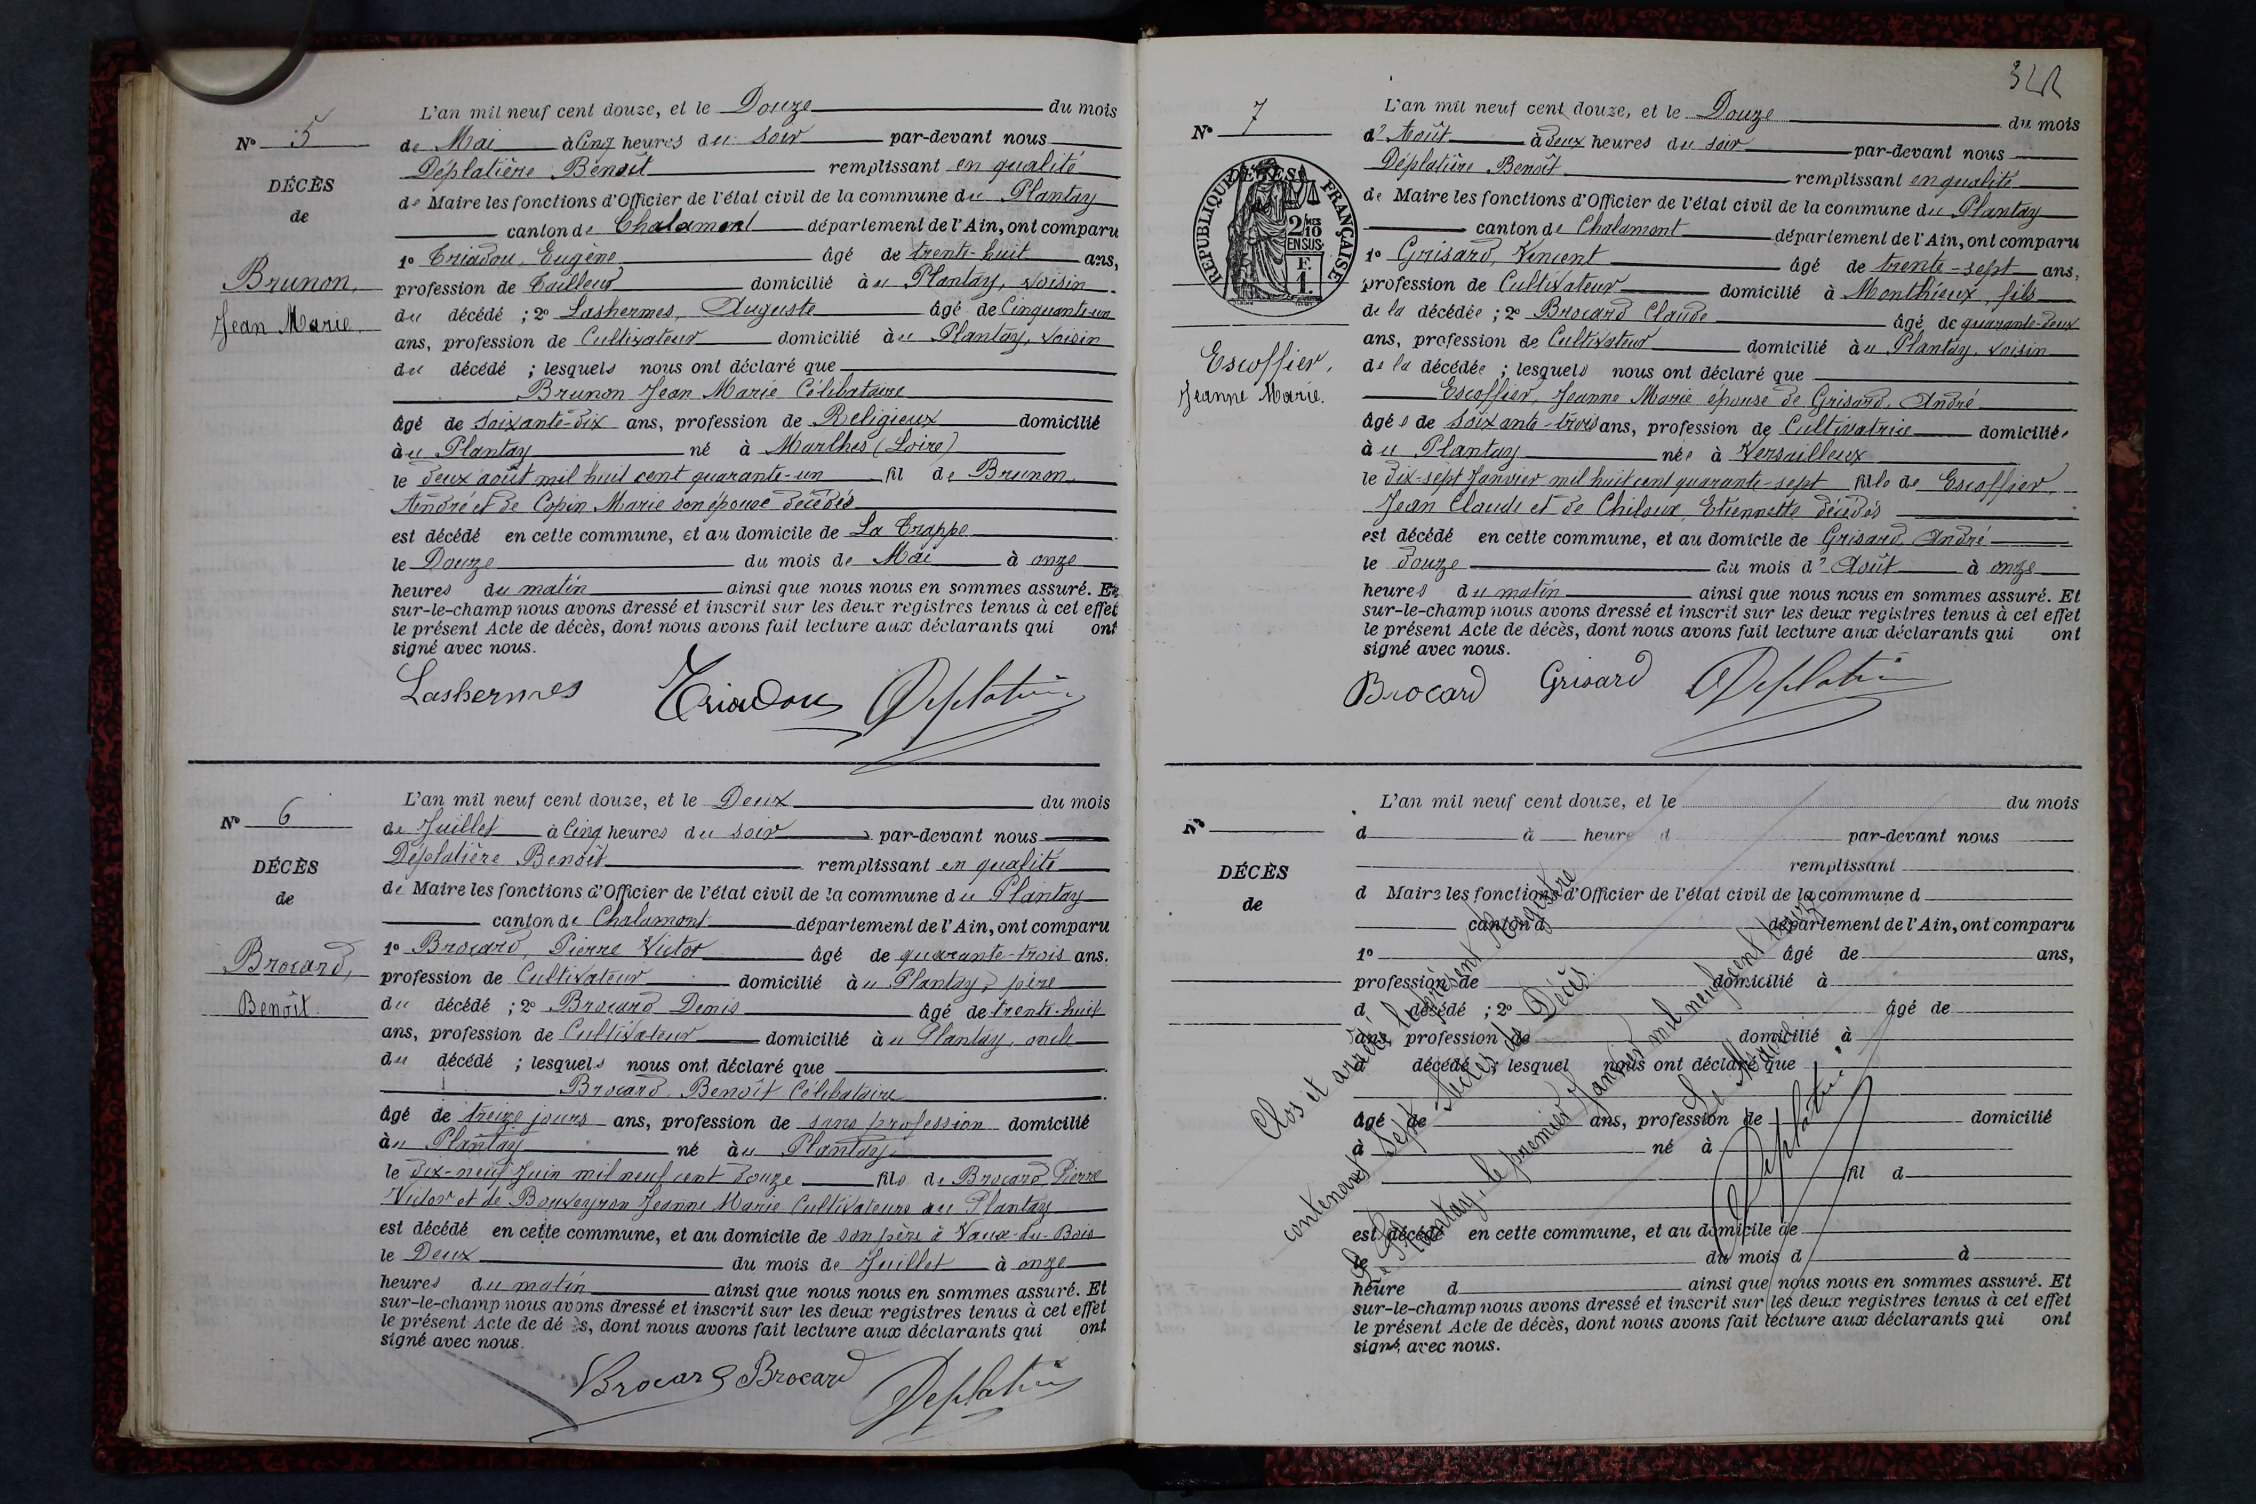 L'an mil neuf cent douze, et le Douze du mois
N° 5
de Mai à Cinq heures du soir par-devant nous
Déplatière Benoît remplissant en qualité
DÉCÈS
de Maire les fonctions d'Officier de l'état civil de la commune du Plantay
de
canton de Chalamont département de l'Ain, ont comparu
1° Triadou, Eugène âgé de trente-huit ans,
Brunon,
profession de Tailleur domicilié au Plantay, voisin
Jean Marie
du décédé ; 2° Lashermes, Auguste âgé de Cinquante-un
ans, profession de Cultivateur domicilié au Plantay, voisin
du décédé ; lesquels nous ont déclaré que
Brunon Jean Marie Célibataire
âgé de soixante-dix ans, profession de Religieux domicilié
au Plantay né à Marlhes (Loire)
le deux août mil huit cent quarante-un fil de Brunon
André et de Copin Marie son épouse décédés
est décédé en cette commune, et au domicile de La Trappe
le Douze du mois de Mai à onze
heures du matin ainsi que nous nous en sommes assuré. Et
sur-le-champ nous avons dressé et inscrit sur les deux registres tenus à cet effet
le présent Acte de décès, dont nous avons fait lecture aux déclarants qui ont
signé avec nous.
Lashermes Triadou Déplatière
L'an mil neuf cent douze, et le Deux du mois
N° 6
de Juillet à Cinq heures du soir par-devant nous
Déplatière Benoît remplissant en qualité
DÉCÈS
de Maire les fonctions d'Officier de l'état civil de la commune du Plantay
de
canton de Chalamont département de l'Ain, ont comparu
1° Brocard, Pierre Victor âgé de quarante-trois ans.
Brocard,
profession de Cultivateur domicilié au Plantay, père
Benoît
du décédé ; 2° Brocard Denis âgé de trente-huit
ans, profession de Cultivateur domicilié au Plantay, oncle
du décédé ; lesquels nous ont déclaré que
Brocard Benoît Célibataire
âgé de treize jours ans, profession de sans profession domicilié
au Plantay né au Plantay
le dix-neuf Juin mil neuf cent douze fils de Brocard Pierre
Victor et de Bouveyron Jeanne Marie Cultivateurs au Plantay
est décédé en cette commune, et au domicile de son père à Vaux-du-Bois
le Deux du mois de Juillet à onze
heures du matin ainsi que nous nous en sommes assuré. Et
sur-le-champ nous avons dressé et inscrit sur les deux registres tenus à cet effet
le présent Acte de dé s, dont nous avons fait lecture aux déclarants qui ont
signé avec nous.
Brocard Brocard Déplatière
L'an mil neuf cent douze, et le Douze du mois
N° 7
d'Août à deux heures du soir par-devant nous
Déplatière Benoît remplissant en qualité
RÉPUBLIQUE FRANÇAISE
2/10 EN SUS
F. 1.
de Maire les fonctions d'Officier de l'état civil de la commune du Plantay
canton de Chalamont département de l'Ain, ont comparu
1° Grisard, Vincent âgé de trente-sept ans,
profession de Cultivateur domicilié à Monthieux, fils
de la décédée ; 2° Brocard Claude âgé de quarante-deux
Escoffier,
ans, profession de Cultivateur domicilié au Plantay, voisin
Jeanne Marie.
de la décédée ; lesquels nous ont déclaré que
Escoffier, Jeanne Marie épouse de Grisard, André
âgée de soixante-trois ans, profession de Cultivatrice domiciliée
au Plantay née à Versailleux
le dix-sept Janvier mil huit cent quarante-sept fille de Escoffier,
Jean Claude et de Etiennette décédés
est décédé en cette commune, et au domicile de Grisard André
le douze du mois d'Août à onze
heures du matin ainsi que nous nous en sommes assuré. Et
sur-le-champ nous avons dressé et inscrit sur les deux registres tenus à cet effet
le présent Acte de décès, dont nous avons fait lecture aux déclarants qui ont
signé avec nous.
Brocard Grisard Déplatière
L'an mil neuf cent douze, et le du mois
N°
d à heure d par-devant nous
remplissant
DÉCÈS
d Maire les fonctions d'Officier de l'état civil de la commune d
de
canton d département de l'Ain, ont comparu
1° âgé de ans,
profession de domicilié à
d décédé ; 2° âgé de
ans, profession de domicilié à
d décédé ; lesquel nous ont déclaré que
âgé de ans, profession de domicilié
à né à
le fil d
est décédé en cette commune, et au domicile de
le du mois d à
heure d ainsi que nous nous en sommes assuré. Et
sur-le-champ nous avons dressé et inscrit sur les deux registres tenus à cet effet
le présent Acte de décès, dont nous avons fait lecture aux déclarants qui ont
signé avec nous.
Clos et arrêté le présent Registre
contenant sept Actes de Décès.
Le Plantay, le premier Janvier mil neuf cent treize
Le Maire
Déplatière